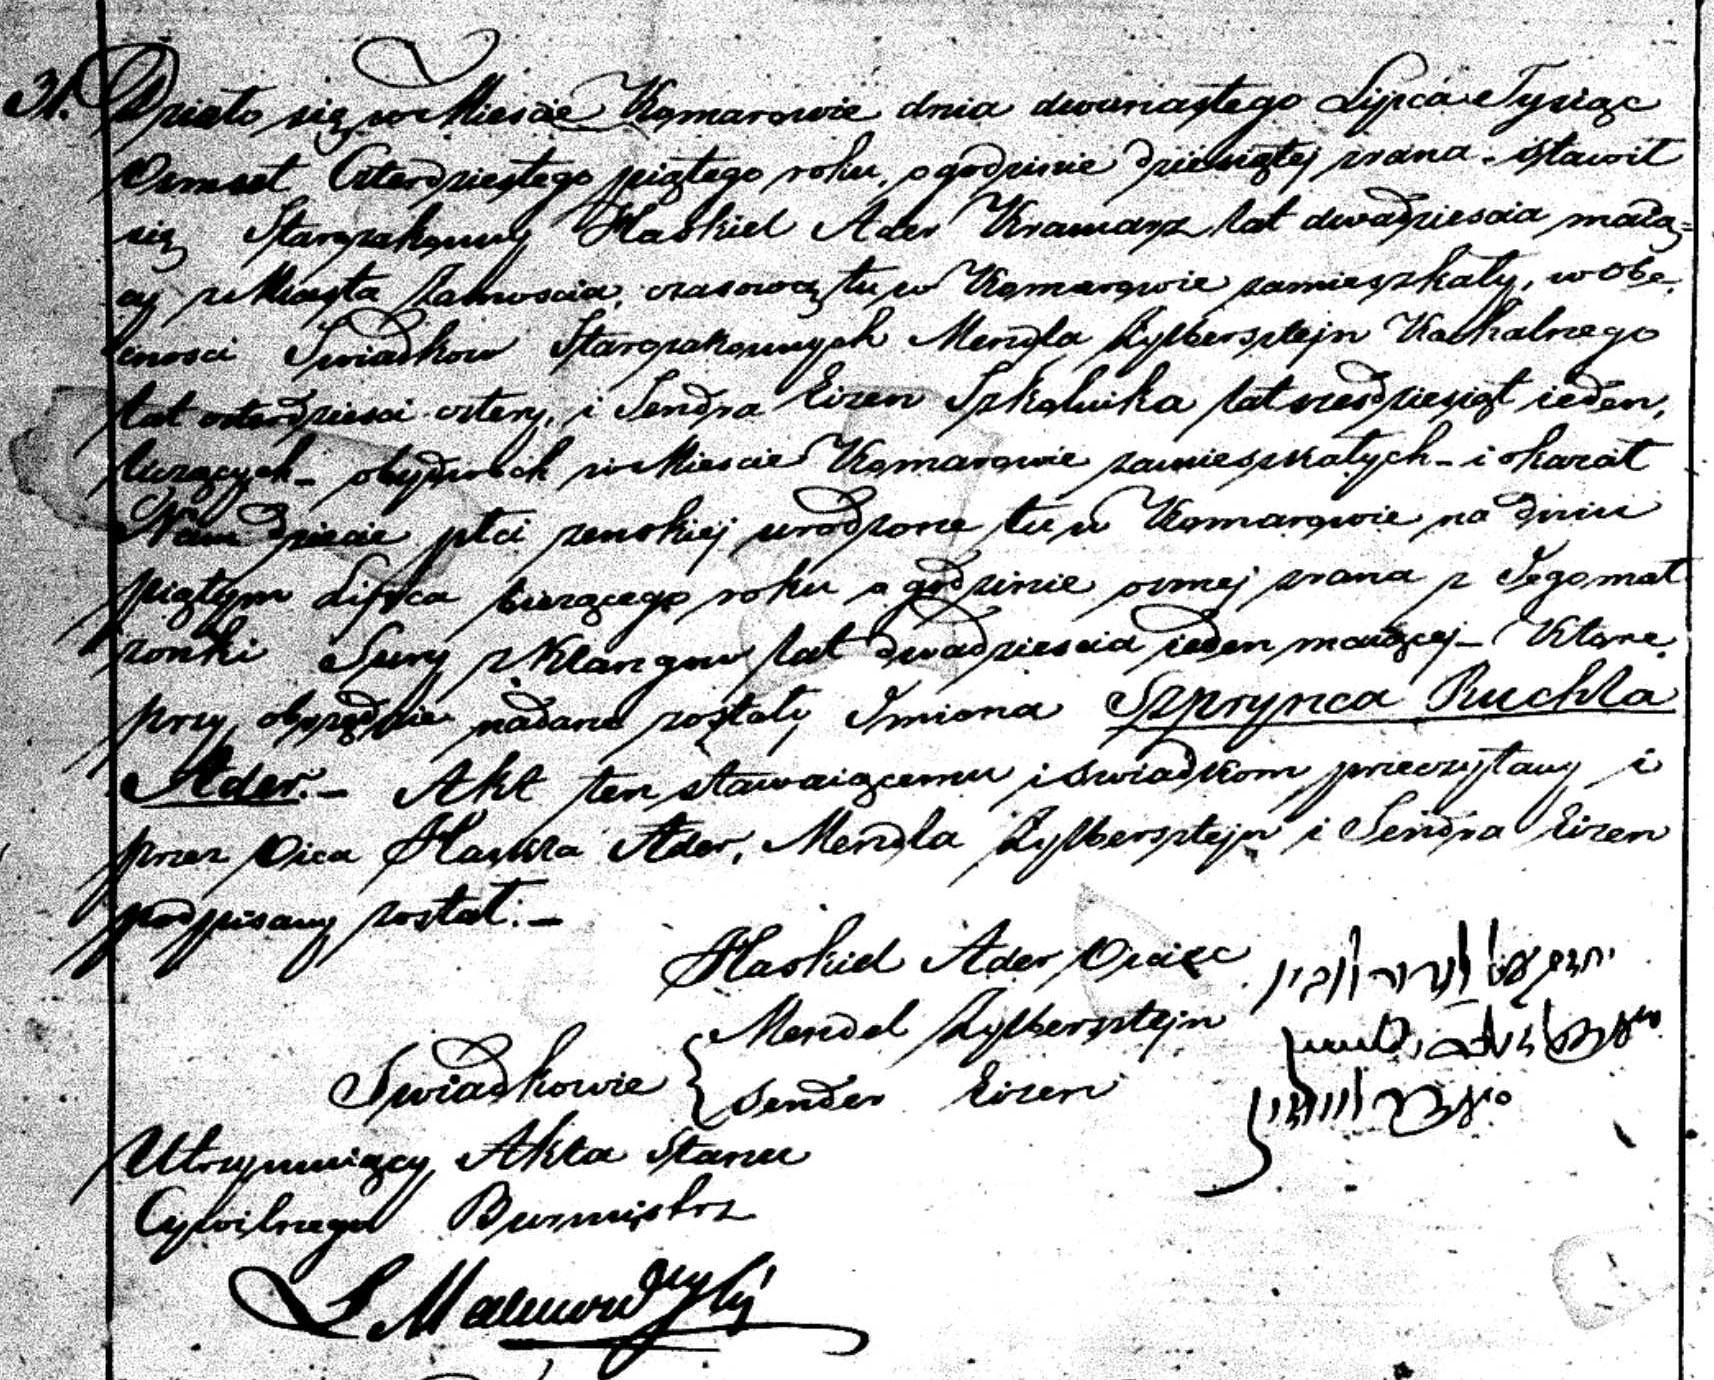 31. Działo się w Mieście Komarowie dnia dwunastego Lipca Tysiąc
Osmset Czterdziestego piątego roku, o godzinie dziesiątej zrana - stawił
się Starozakonny Haskiel Ader Kramarz lat dwadziescia maią=
cy z Miasta Zamościa, czasowo tu w Komarowie zamieszkały, w obe
cnosci Swiadkow Starozakonnych Mendla Zylbersztejn Kachalnego
lat czterdziesci cztery, i Sendra Eizen Szkolnika lat szesdziesiąt ieden,
liczących - obydwoch w Mieście Komarowie zamieszkałych - i okazał
Nam dziecie płci zenskiej urodzone tu w Komarowie na dniu
piątym Lipca biezącego roku o godzinie osmej zrana z Jego mał
zonki Sury z Klangow lat dwadziescia ieden maiącej - Ktore
przy obrzędzie nadane zostały Imiona Szprynca Ruchla
Ader. - Akt ten stawaiącemu i swiadkom przeczytany i
przez Oica Haskla Ader, Mendla Zylbersztejn i Sendra Eizen
podpisany został. -
Haskiel Ader Ociec
Mendel Zylbersztejn
Swiadkowie { Sender Eizen
Utrzymuiący Akta Stanu
Cywilnego Burmistrz